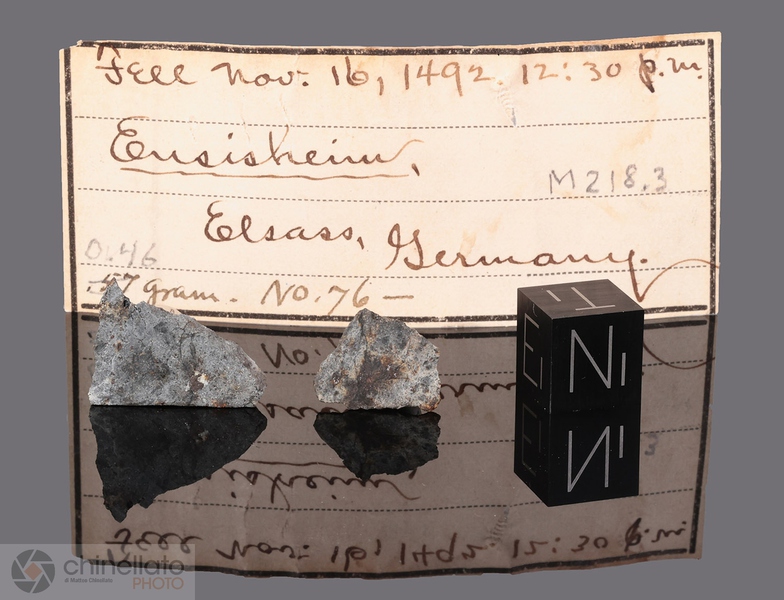 Fell Nov. 16, 1492. 12:30 p.m.
Ensisheim,
M218.3
Elsass, Germany.
0.46
.57 gram. No. 76 —
E T N1
chinellato
di Matteo Chinellato
PHOTO